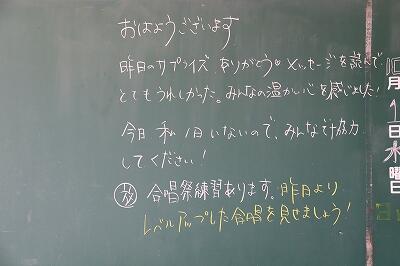 おはようございます
昨日のサプライズ ありがとう♡ メッセージを読んで、
とてもうれしかった。みんなの温かい心を感じました!
今日 私 1日 いないので、みんなで協力
してください!
合唱祭練習あります。昨日より
レベルアップした合唱を見せましょう!
月
1
日
木
曜
日